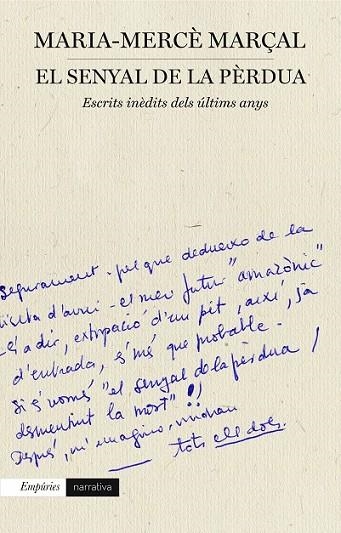 MARIA-MERCÈ MARÇAL
EL SENYAL DE LA PÈRDUA
Escrits inèdits dels últims anys
Segurament - pel que dedueixo de la
visita d'avui - el meu futur "amazònic"
- és a dir, extirpació d'un pit, així, ja
d'entrada, és més que probable.
Si és només "el senyal de la pèrdua /
desmentint la mort"!!
Després, m'imagino, vindran
— tots els dols.
Empúries narrativa